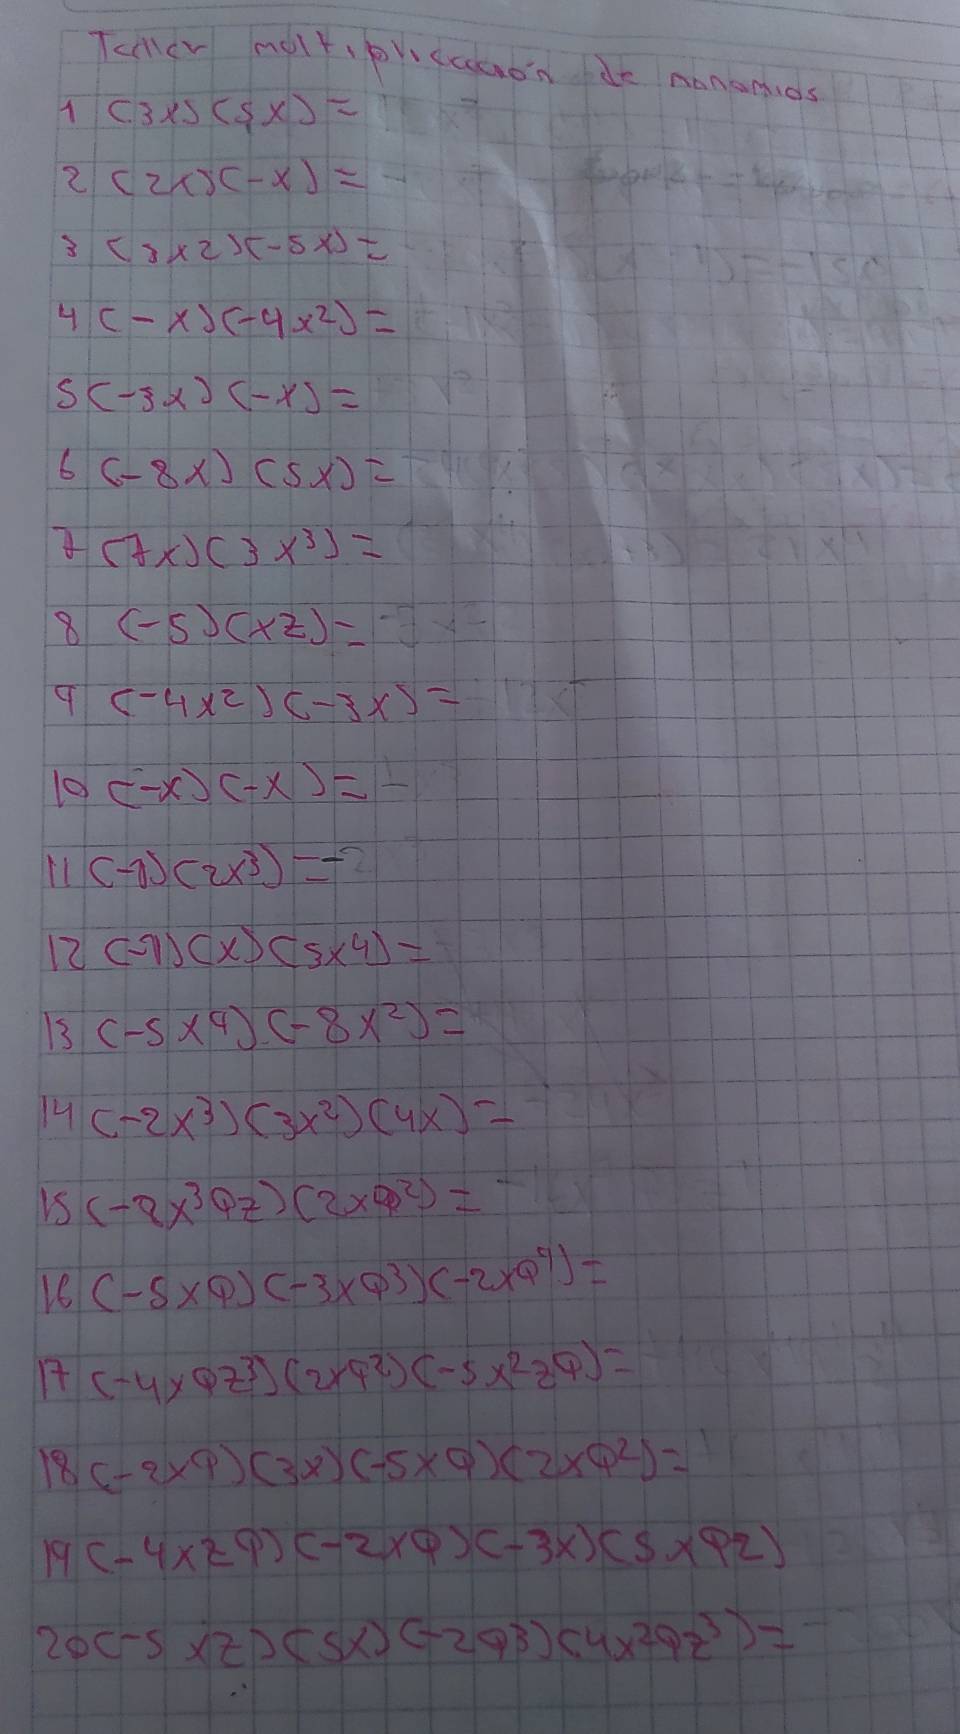 Taller multiplicación de monomios
1 (3x)(5x)=
2 (2x)(-x)=
3 (3x2)(-5x)=
4 (-x)(-4x²)=
5 (-3x)(-x)=
6 (-8x)(5x)=
7 (7x)(3x³)=
8 (-5)(x2)=
9 (-4x²)(-3x)=
10 (-x)(-x)=
11 (-1)(2x³)=
12 (-1)(x)(5x4)=
13 (-5x4)(-8x²)=
14 (-2x³)(3x²)(4x)=
15 (-8x³φz)(2xφ²)=
16 (-5xφ)(-3xφ³)(-2xφ⁴)=
17 (-4xφz³)(2xφ²)(-5x²zφ)=
18 (-2xφ)(3x)(-5xφ)(2xφ²)=
19 (-4xzφ)(-2xφ)(-3x)(5xφz)
20 (-5xz)(5x)(-2φ3)(4x²φz³)=